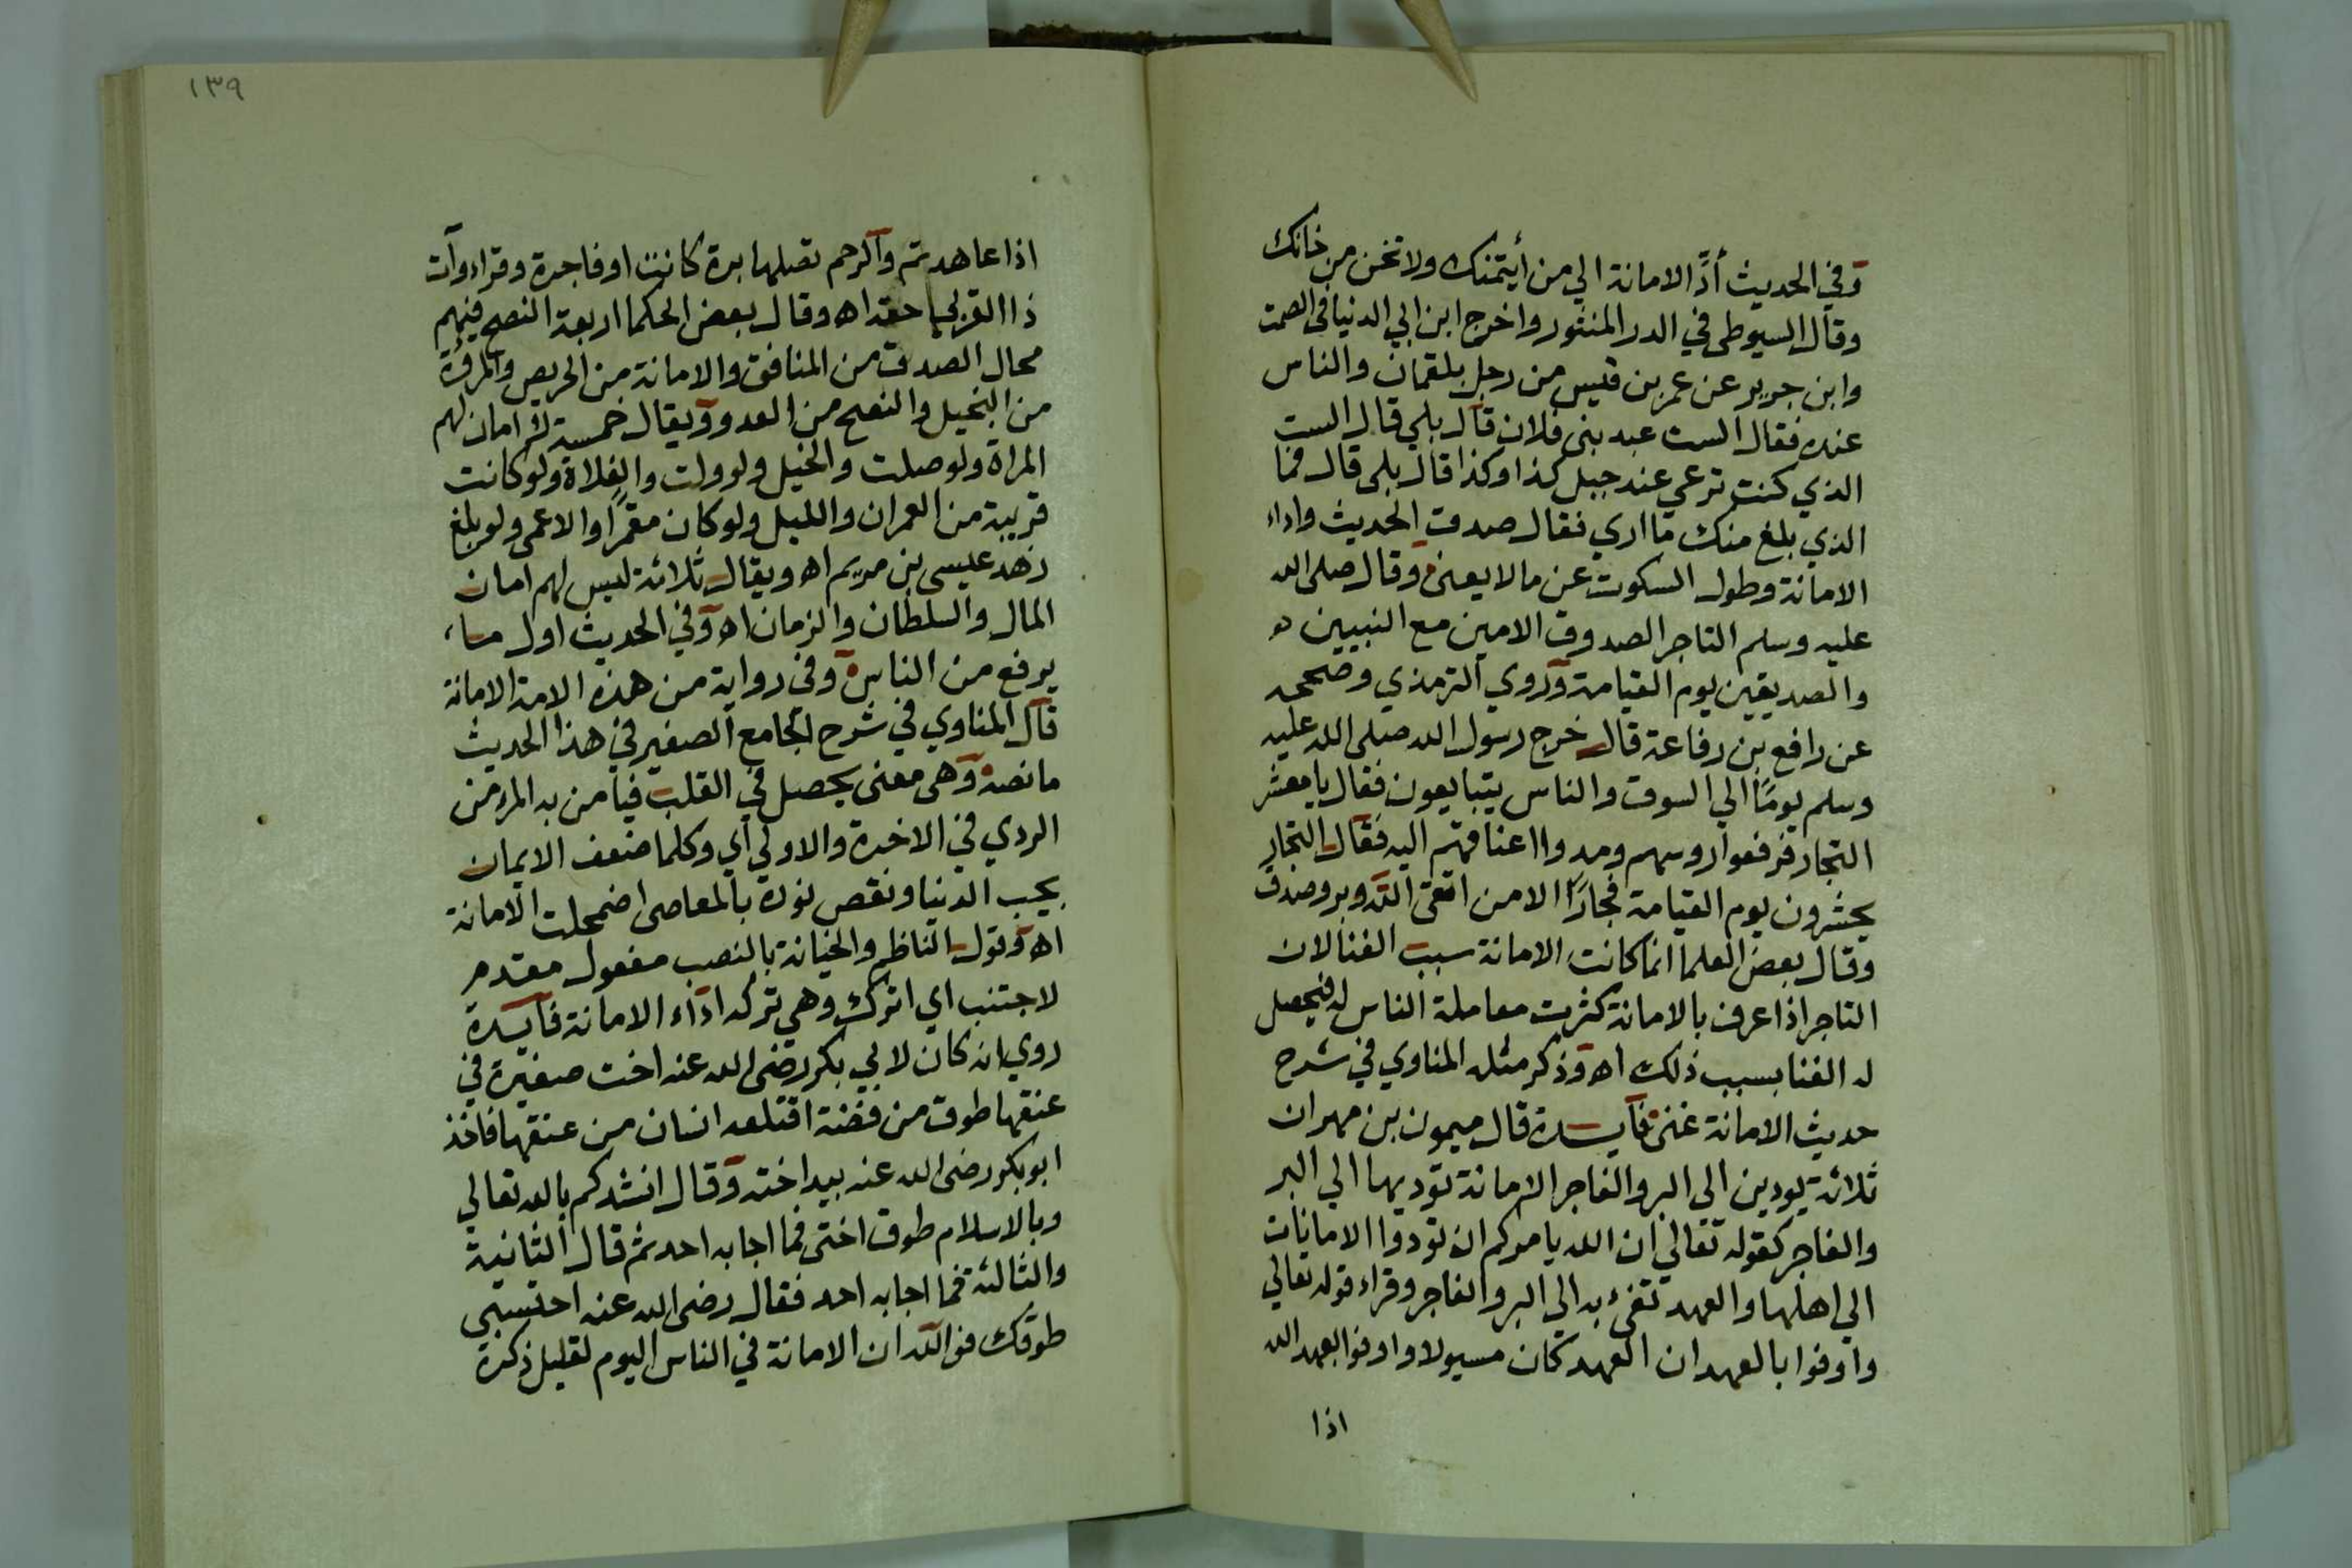 وفي الحديث أدِّ الامانة الي من أيتمنك ولا تخن من خانك
وقال السيوطى في الدر المنثور واخرج ابن ابي الدنيا فى الصمت
وابن جرير عن عمر بن قيس من رجل بلقمان والناس
عنده فقال الست عبد بنى فلان قال بلي قال الست
الذي كنت ترعي عند جبل كذا وكذا قال بلى قال فما
الذي بلغ منك ما اري فقال صدق الحديث واداء
الامانة وطول السكوت عن ما لا يعنى وقال صلى الله
عليه وسلم التاجر الصدوق الامين مع النبيين
والصديقين يوم القيامة وروي الترمذي وصححه
عن رافع بن رفاعة قال خرج رسول الله صلى الله عليه
وسلم يومًا الي السوق والناس يتبايعون فقال يا معشر
التجار فرفعوا روسهم ومدوا اعناقهم اليه فقال التجار
يحشرون يوم القيامة فجارًا الا من اتقى الله وبر وصدق
وقال بعض العلما انما كانت الامانة سبب الغنا لان
التاجر اذا عرف بالامانة كثرت معاملة الناس له فيحصل
له الغنا بسبب ذلك اه وذكر مثله المناوي في شرح
حديث الامانة غنى فايدة قال ميمون بن مهران
ثلاثة يودين الى البر والفاجر الامانة توديها الي البر
والفاجر كقوله تعالي ان الله يامركم ان تودوا الامانات
الي اهلها والعهد تفئ به الي البر والفاجر وقراء قوله تعالي
واوفوا بالعهد ان العهد كان مسيولا واوفوا بعهد الله
اذا
١٣٩
اذا عاهدتم والرحم تصلها برة كانت او فاجرة وقراء وآت
ذا القربي حقه اه وقال بعض الحكما اربعة النصح فيهم
محال الصدق من المنافق والامانة من الحريص والمروة
من البخيل والنصح من العدو ويقال خمسة لا امان لهم
المراة ولو صلت والخيل ولو ولت والفلاة ولو كانت
قريبة من العمران والليل ولو كان مقمرًا والاعمى ولو بلغ
زهد عيسى بن مريم اه ويقال ثلاثة ليس لهم امان
المال والسلطان والزمان اه وفي الحديث اول ما
يرفع من الناس وفى رواية من هذه الامة الامانة
قال المناوي في شرح الجامع الصغير في هذا الحديث
ما نصه وهى معنى يحصل في القلب فيامن به المرء من
الردي في الاخرة والاولي اي وكلما ضعف الايمان
بحب الدنيا ونقص نوره بالمعاصى اضمحلت الامانة
اه وقول الناظم والخيانة بالنصب مفعول مقدم
لاجتنب اي اترك وهي تركه اداء الامانة فايدة
روي انه كان لابي بكر رضى الله عنه اخت صغيرة في
عنقها طوق من فضة اقتلعه انسان من عنقها فاخذ
ابو بكر رضى الله عنه بيد اخته وقال انشدكم بالله تعالي
وبالاسلام طوق اختى فما اجابه احد ثم قال الثانية
والثالثة فما اجابه احد فقال رضى الله عنه احتسبى
طوقك فوالله ان الامانة في الناس اليوم لقليل ذكره